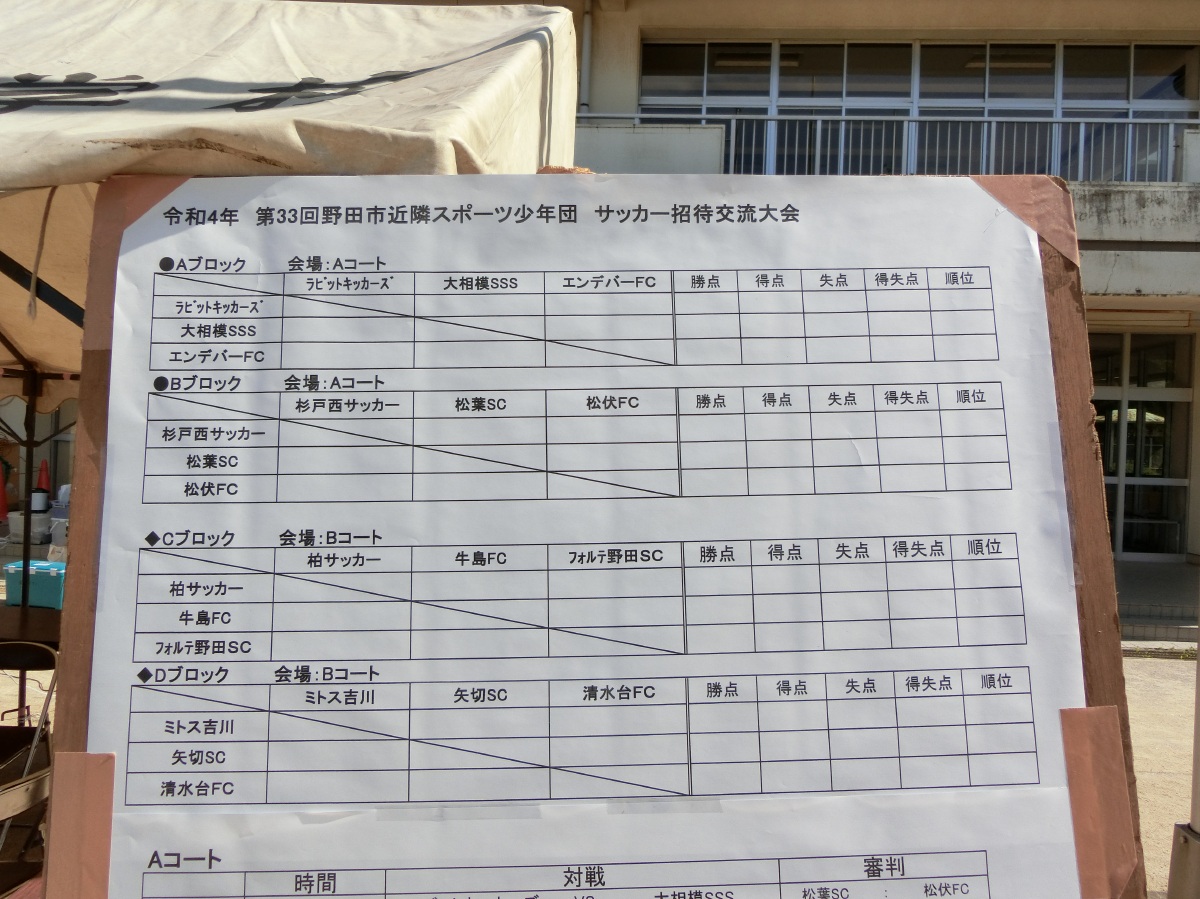 令和4年 第33回野田市近隣スポーツ少年団 サッカー招待交流大会
●Aブロック 会場:Aコート
ﾗﾋﾞｯﾄｷｯｶｰｽﾞ 大相模SSS エンデバーFC 勝点 得点 失点 得失点 順位
ﾗﾋﾞｯﾄｷｯｶｰｽﾞ
大相模SSS
エンデバーFC
●Bブロック 会場:Aコート
杉戸西サッカー 松葉SC 松伏FC 勝点 得点 失点 得失点 順位
杉戸西サッカー
松葉SC
松伏FC
◆Cブロック 会場:Bコート
柏サッカー 牛島FC ﾌｫﾙﾃ野田SC 勝点 得点 失点 得失点 順位
柏サッカー
牛島FC
ﾌｫﾙﾃ野田SC
◆Dブロック 会場:Bコート
ミトス吉川 矢切SC 清水台FC 勝点 得点 失点 得失点 順位
ミトス吉川
矢切SC
清水台FC
Aコート
時間 対戦 審判
大相模SSS 松葉SC : 松伏FC